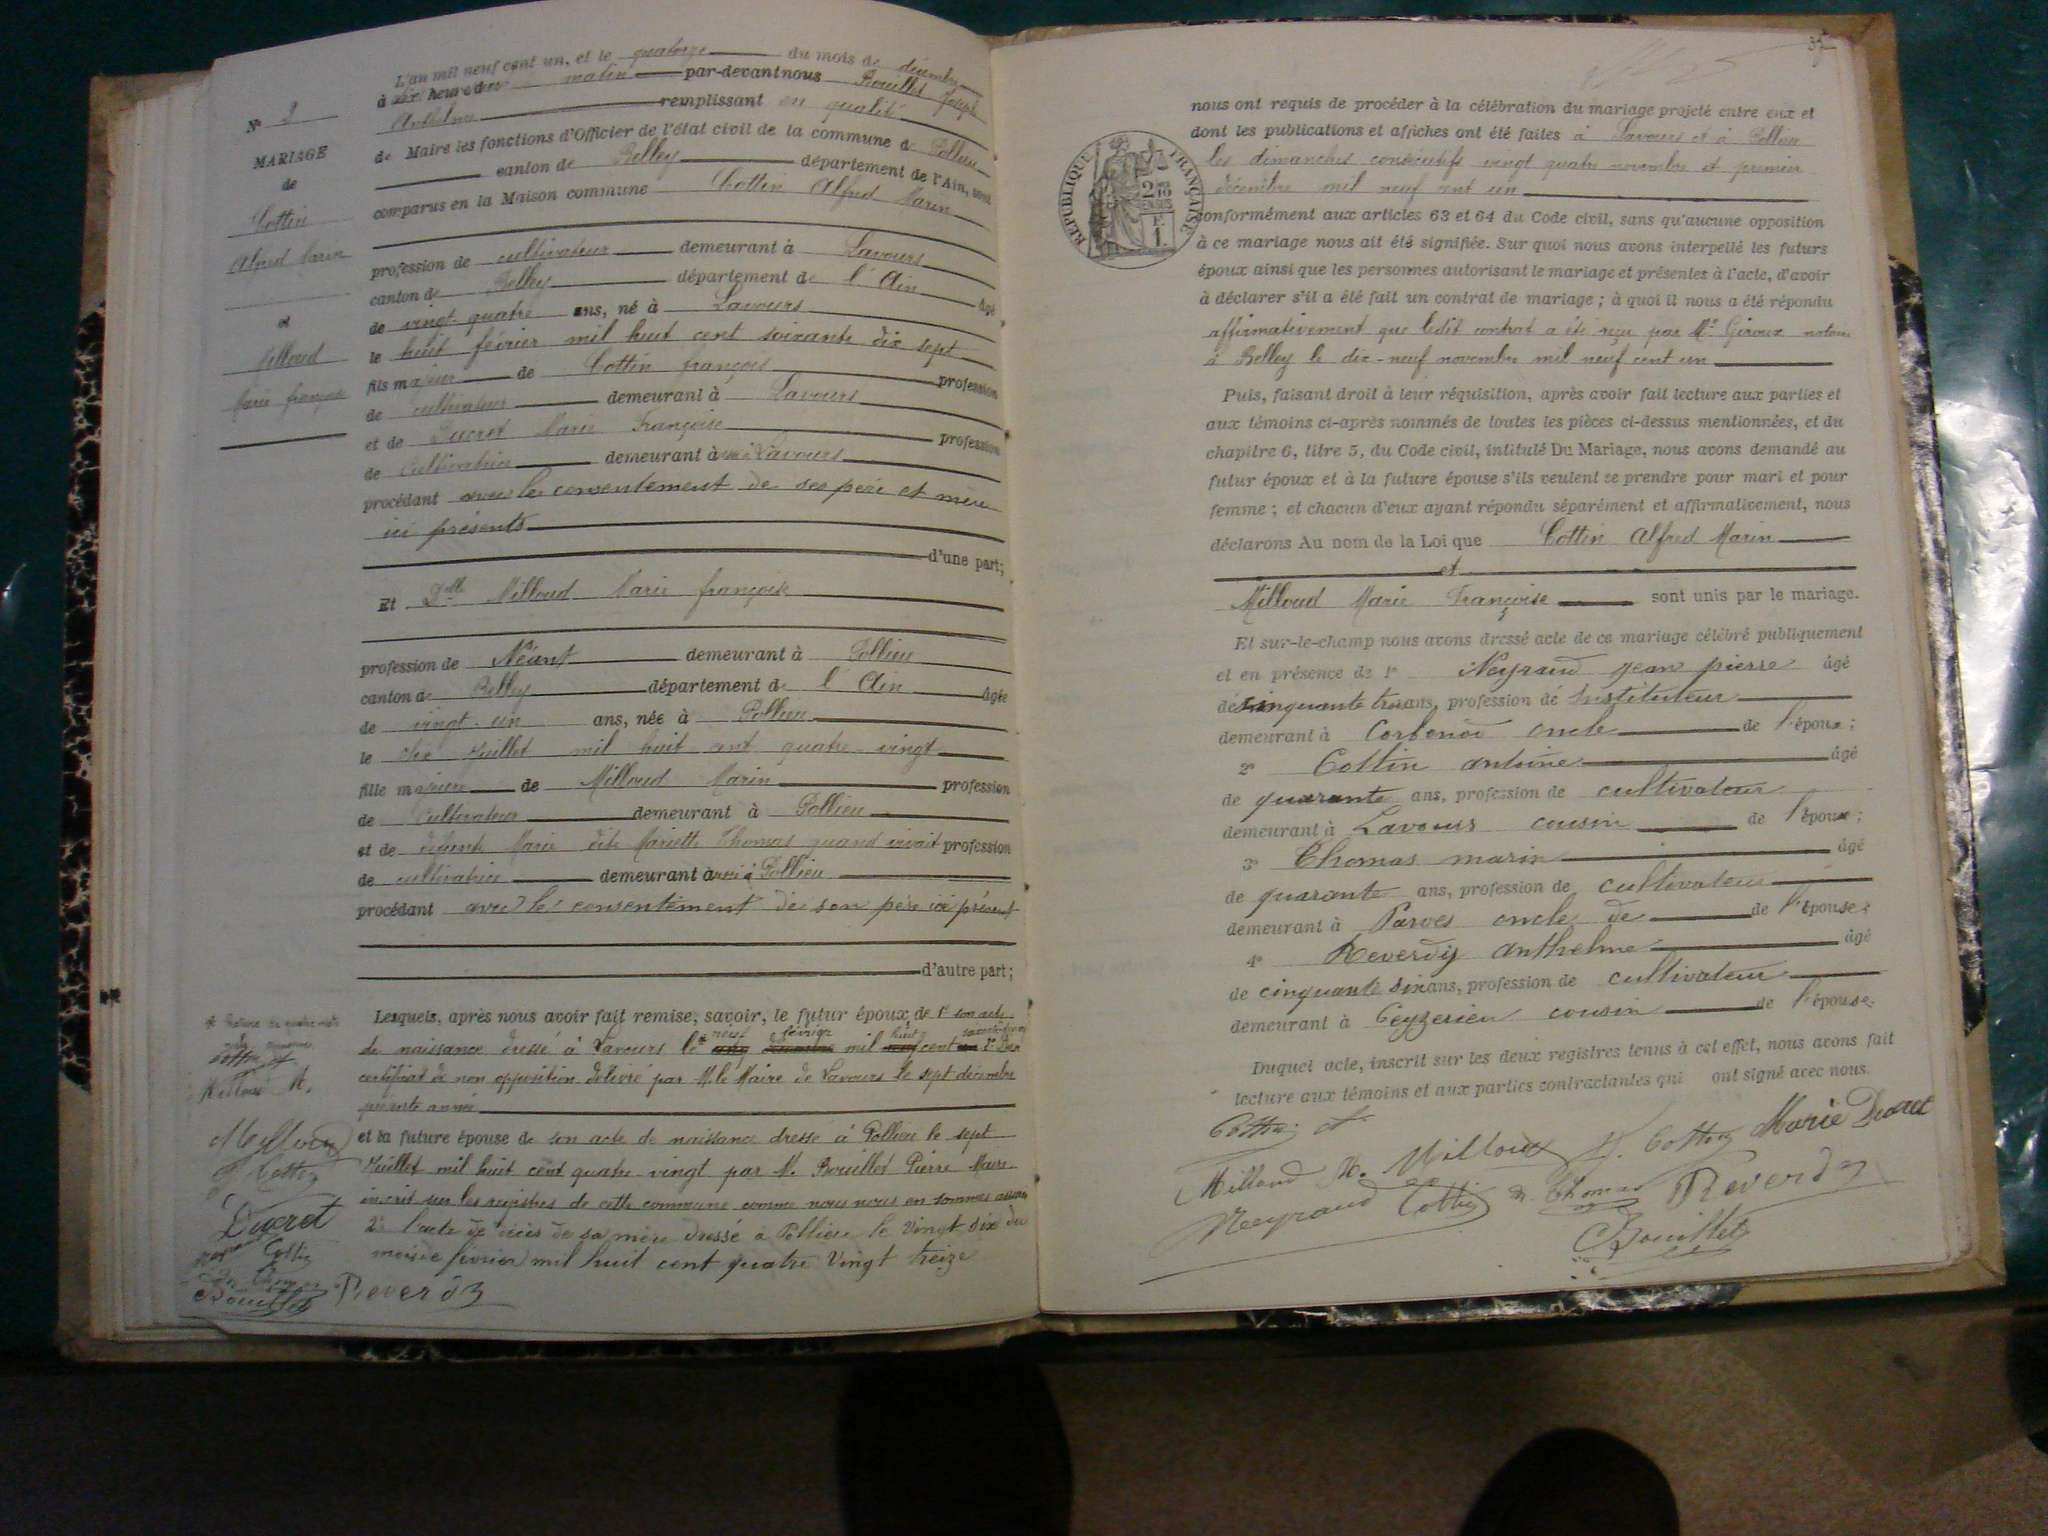 L'an mil neuf cent un, et le quatorze du mois de décembre
à dix heures du matin par-devant nous Bouillet Joseph
Anthelme remplissant en qualité
de Maire les fonctions d'Officier de l'état civil de la commune de Pollieu
canton de Belley département de l'Ain, sont
comparus en la Maison commune Cottin Alfred Marin
profession de cultivateur demeurant à Lavours
canton de Belley département de l'Ain âgé
de vingt-quatre ans, né à Lavours
le huit février mil huit cent soixante dix sept
fils majeur de Cottin françois profession
de cultivateur demeurant à Lavours
et de Ducret Marie Françoise profession
de cultivatrice demeurant à Lavours
procédant avec le consentement de ses père et mère
ici présents
d'une part;
Et Dlle Milloud Marie françoise
profession de Néant demeurant à Pollieu
canton de Belley département de l'Ain âgée
de vingt-un ans, née à Pollieu
le six Juillet mil huit cent quatre-vingt
fille majeure de Milloud Marin profession
de cultivateur demeurant à Pollieu
et de défunte Marie dite Mariette Thomas quand vivait profession
de cultivatrice demeurant à Pollieu
procédant avec le consentement de son père ici présent
d'autre part;
Lesquels, après nous avoir fait remise, savoir, le futur époux de 1° son acte
de naissance dressé à Lavours le neuf février mil huit cent 2° Du
certificat de non opposition délivré par M. le Maire de Lavours le sept décembre
présente année
et la future épouse de son acte de naissance dressé à Pollieu le sept
Juillet mil huit cent quatre-vingt par M. Bouillet Pierre Maire
inscrit sur les registres de cette commune comme nous nous en sommes assuré
2° l'acte de décès de sa mère dressé à Pollieu le vingt six du
mois de février mil huit cent quatre vingt treize
N° 2
MARIAGE
de
Cottin
Alfred Marin
et
Milloud
Marie françoise
Cottin A
Milloud M.
Milloud
Cottin
Ducret
Cottin
Thomas
Bouillet Reverdy
37
nous ont requis de procéder à la célébration du mariage projeté entre eux et
dont les publications et affiches ont été faites à Lavours et à Pollieu
les dimanches consécutifs vingt quatre novembre et premier
décembre mil neuf cent un
RÉPUBLIQUE FRANÇAISE
conformément aux articles 63 et 64 du Code civil, sans qu'aucune opposition
à ce mariage nous ait été signifiée. Sur quoi nous avons interpellé les futurs
époux ainsi que les personnes autorisant le mariage et présentes à l'acte, d'avoir
à déclarer s'il a été fait un contrat de mariage; à quoi il nous a été répondu
affirmativement que ledit contrat a été reçu par Me Giroux notaire
à Belley le dix-neuf novembre mil neuf cent un
Puis, faisant droit à leur réquisition, après avoir fait lecture aux parties et
aux témoins ci-après nommés de toutes les pièces ci-dessus mentionnées, et du
chapitre 6, titre 5, du Code civil, intitulé Du Mariage, nous avons demandé au
futur époux et à la future épouse s'ils veulent se prendre pour mari et pour
femme; et chacun d'eux ayant répondu séparément et affirmativement, nous
déclarons Au nom de la Loi que Cottin Alfred Marin
et
Milloud Marie Françoise sont unis par le mariage.
Et sur-le-champ nous avons dressé acte de ce mariage célébré publiquement
et en présence de 1° Neyraud Jean pierre âgé
de cinquante trois ans, profession de Instituteur
demeurant à Corbonod oncle de l'époux;
2° Cottin antoine âgé
de quarante ans, profession de cultivateur
demeurant à Lavours cousin de l'époux;
3° Thomas marin âgé
de quarante ans, profession de cultivateur
demeurant à Parves oncle de de l'épouse;
4° Reverdy anthelme âgé
de cinquante six ans, profession de cultivateur
demeurant à Ceyzerieu cousin de l'épouse.
Duquel acte, inscrit sur les deux registres tenus à cet effet, nous avons fait
lecture aux témoins et aux parties contractantes qui ont signé avec nous.
Cottin A Marie Ducret
Milloud M. Milloud F. Cottin
Neyraud Cottin M. Thomas Reverdy
Bouillet